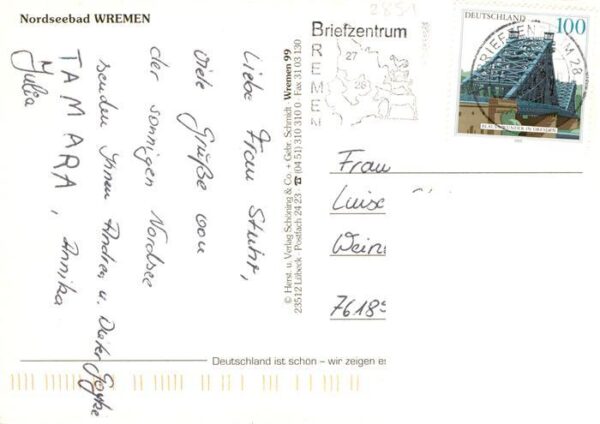 Nordseebad WREMEN
Liebe Frau Stuhr,
viele Grüße von
der sonnigen Nordsee
senden Ihnen Andrea u. Dieter
TAMARA, Annika
Julia
© Herst. u. Verlag Schöning & Co. + Gebr. Schmidt · Wremen 99
23512 Lübeck · Postfach 24 23 · ☎ (04 51) 310 310 0 · Fax 31 03 130
Briefzentrum
BREMEN
27
28
DEUTSCHLAND 100
BLAUES WUNDER IN DRESDEN
BRIEFZENTRUM 28
Frau
Luise
Wein
7618
Deutschland ist schön – wir zeigen es